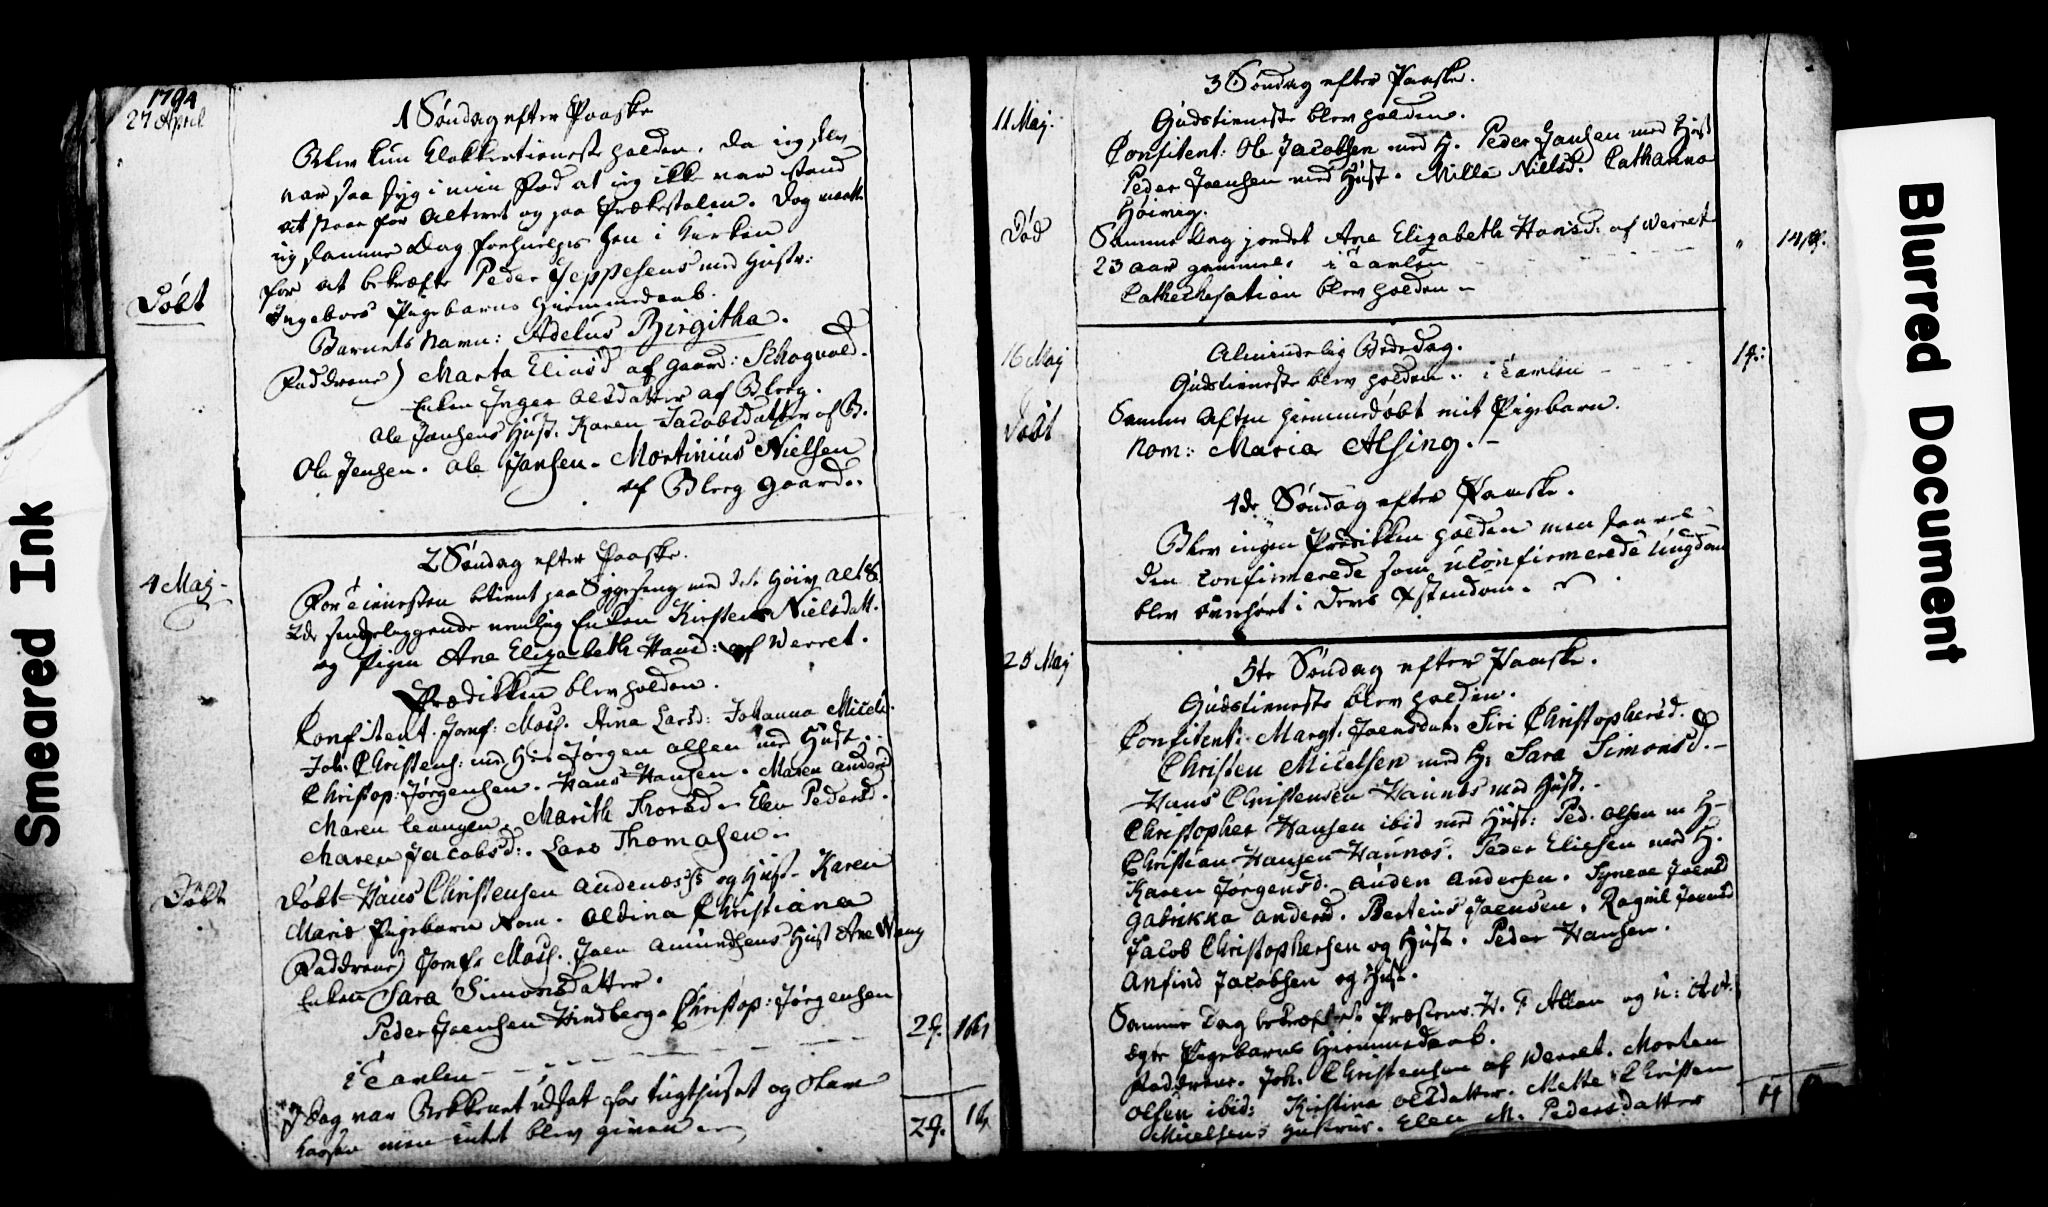 1794
27 April
1 Søndag efter Paaske
Blev kun Klokkertieneste holden, da jeg selv
var saa syg i min Fod at jeg ikke var i stand
at staae for Alteret og paa Prækestolen. Dog maatte
jeg samme Dag forhielpes hen i Kirken
for at bekræfte Peder Jeppesens med Hustr:
Døbt
Ingebors Pigebarns Hiemmedaab.
Barnets Navn: Adelus Birgitha.
Fadderne) Marta Eliasd af Gaard: Schogvold.
Enken Inger Olsdatter af Bleeg.
Ole Jansens Hust. Karen Jacobsdatter af B.
Ole Jensen. Ole Jansen. Mortinius Nielsen
af Bleeg Gaard.
4 Maj
2 Søndag efter Paaske.
For Tienesten betient paa Sygeseng med det Høiv. Alt:
2de sengeliggende nemlig Enken Kirsten Nielsdatt.
og Pigen Ane Elizabeth Hansd: af Werret.
Prædikken blev holden.
Confitent. Jomf: Mosf. Ana Larsd: Johanna Micels.
Joh: Christens: med H. Jørgen Olsen med Hust.
Christop: Jørgensen. Hans Hansen. Maren Andersd
Maren Leangen. Marith Thorsd. Elen Pedersd.
Maren Jacobsd:. Lars Thomasen.
Døbt
Døbt Hans Christensen Andenæss og Hust. Karen
Maris Pigebarn Nom. Oldina Christiana
Fadderne) Jomfr Mosf. Joen Amundsens Hust Ane Wang
Enken Sara Simonsdatter.
Peder Joensen Hindberg. Christop: Jørgensen
i Tavlen - - - 2 . 16
I Dag var Bekkenet udsat for Tugthuset og
Kassen men intet blev given
2 . 16
11 Maj.
3 Søndag efter Paaske.
Gudstieneste blev holden.
Confitent: Ole Jacobsen med H. Peder Jansen med Hust
Peder Joensen med Hust. Mille Nillsd. Cathanna
Høivig.
Død
Samme Dag jordet Ane Elizabeth Hansd. af Werret
23 Aar gammel. i Tavlen - - - " 14
Cathechesation blev holden
16 Maj
Almindelig Bededag.
Gudstieneste blev holden. i Tavlen - - -
Døbt
Samme Aften hiemmedøbt mit Pigebarn.
Nom: Maria Alsing.
4de Søndag efter Paaske.
Blev ingen Prædikken holden men saavel
den Confirmerede som uconfirmerede Ungdom
blev overhørt i deres Xstendom.
25 Maj
5te Søndag efter Paaske.
Gudstieneste blev holden.
Confitent: Margt. Joensdat. Siri Christophersd.
Christen Micelsen med H. Sara Simonsd.
Hans Christensen Haunes med Hust.
Christopher Hansen ibid med Hust: Ped. Olsen m H
Christian Hansen Haunæs. Peder Eliesen med H.
Karen Jørgensd. Auden Andersen. Synneve Joensd
Gabrikka Andersd. Berteus Joensen. Ragnil Joensd
Jacob Christophersen og Hust. Peder Hansen.
Anfind Jacobsen og Hust.
Samme Dag bekræftede Præstens H. P Allan og
egte Pigebarns Hiemmedaab.
Fadderne. Joh. Christensen af Werret. Morten
Olsen ibid: Kirstina Olsdatter. Mette Christen
Micelsens Hustrue. Elen M. Pedersdatter
Smeared Ink
Blurred Document